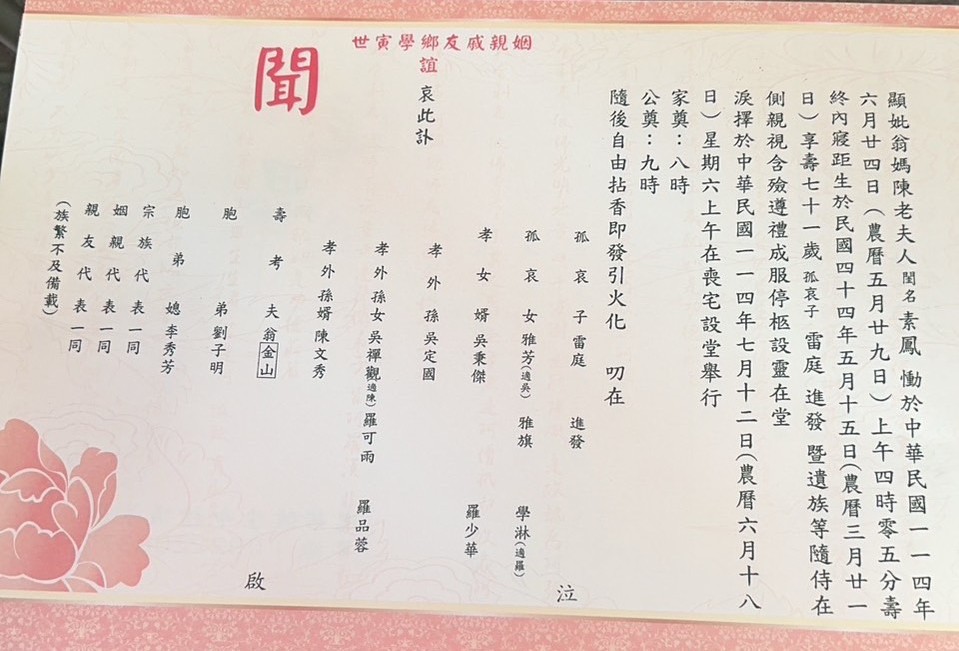 顯妣翁媽陳老夫人閨名素鳳 慟於中華民國一一四年
六月廿四日(農曆五月廿九日)上午四時零五分壽
終內寢距生於民國四十四年五月十五日(農曆三月廿一
日)享壽七十一歲孤哀子 雷庭 進發 暨遺族等隨侍在
側親視含殮遵禮成服停柩設靈在堂
淚擇於中華民國一一四年七月十二日(農曆六月十八
日)星期六上午在喪宅設堂舉行
家奠:八時
公奠:九時
隨後自由拈香即發引火化 叨在
姻親戚友鄉學寅世
誼 哀此訃
聞
孤哀子 雷庭 進發
泣
孤哀女 雅芳(適吳) 雅旗 學淋(適羅)
孝女婿 吳秉傑 羅少華
孝外孫 吳定國
孝外孫女 吳禪觀(適陳) 羅可雨 羅品蓉
孝外孫婿 陳文秀
壽考夫翁金山
啟
胞弟 劉子明
胞弟媳 李秀芳
宗族代表一同
姻親代表一同
親友代表一同
(族繁不及備載)